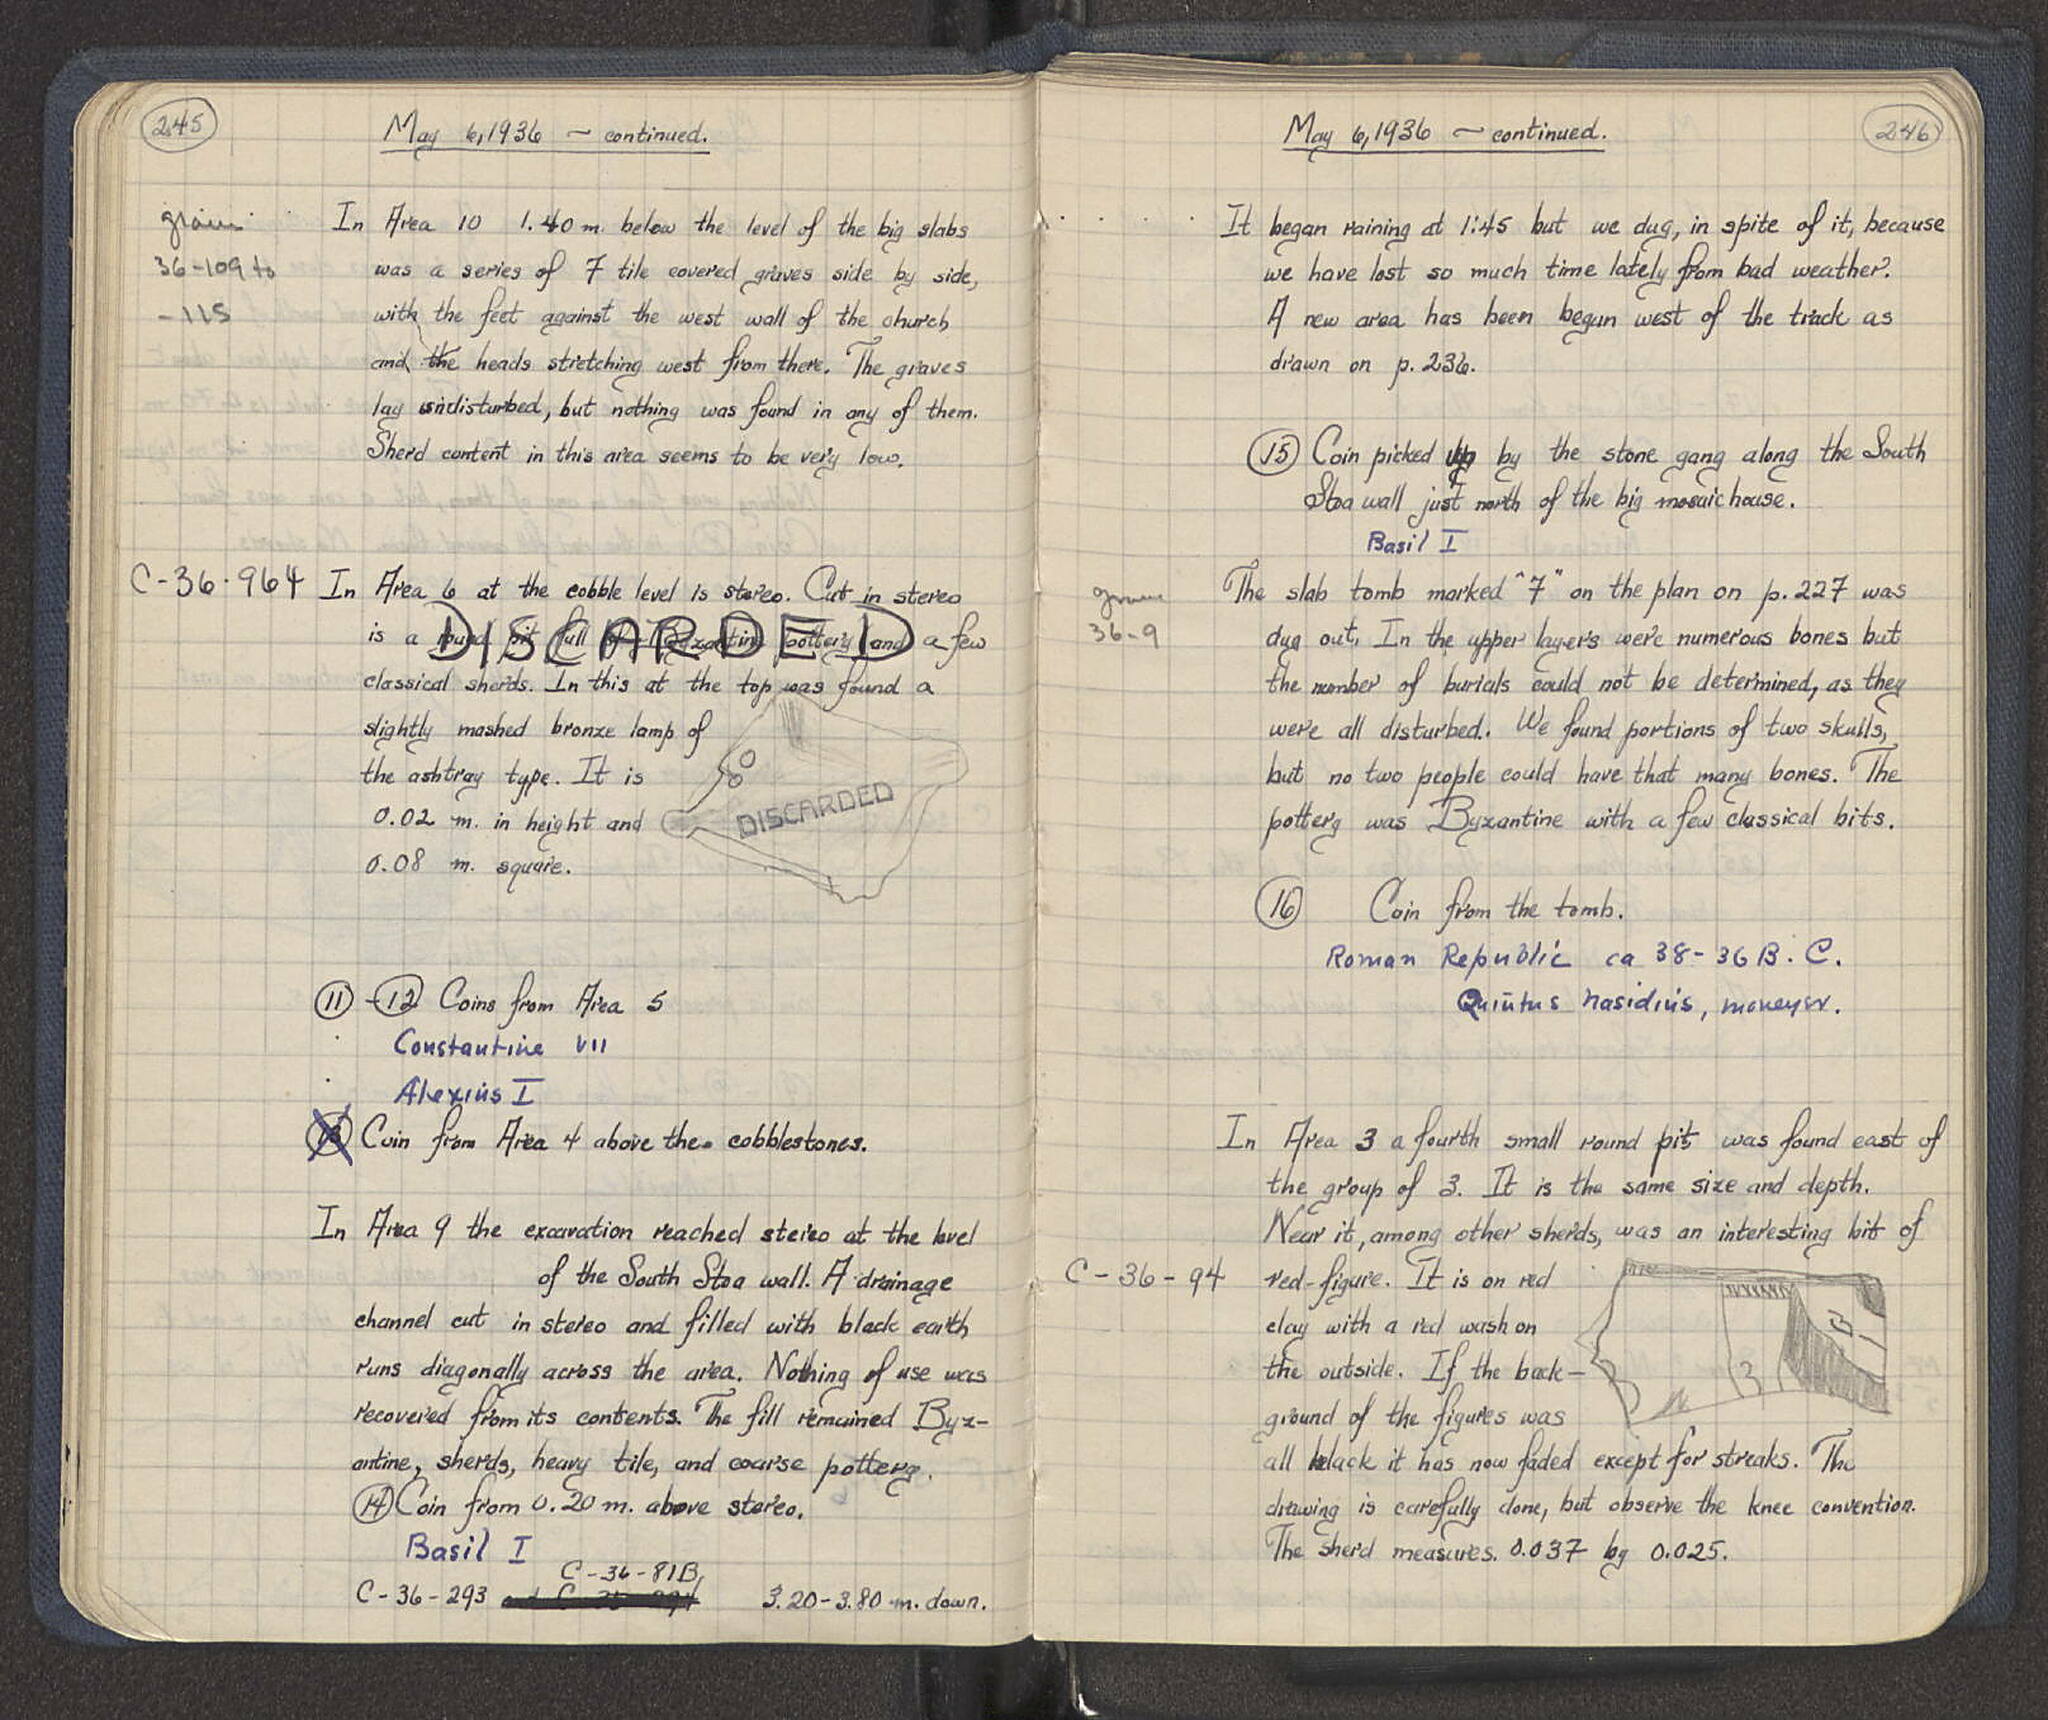 245
May 6, 1936 — continued.
grave
36-109 to
-115
In Area 10 1.40 m. below the level of the big slabs
was a series of 7 tile covered graves side by side,
with the feet against the west wall of the church
and the heads stretching west from there. The graves
lay undisturbed, but nothing was found in any of them.
Sherd content in this area seems to be very low.
C-36-964
In Area 6 at the cobble level is stereo. Cut in stereo
is a round pit full of Byzantine pottery and a few
DISCARDED
classical sherds. In this at the top was found a
slightly mashed bronze lamp of
the ashtray type. It is
0.02 m. in height and
0.08 m. square.
DISCARDED
11 - 12 Coins from Area 5
Constantine VII
Alexius I
13 Coin from Area 4 above the cobblestones.
In Area 9 the excavation reached stereo at the level
of the South Stoa wall. A drainage
channel cut in stereo and filled with black earth
runs diagonally across the area. Nothing of use was
recovered from its contents. The fill remained Byz-
antine, sherds, heavy tile, and coarse pottery.
14 Coin from 0.20 m. above stereo.
Basil I
C-36-81B,
C-36-293 3.20-3.80 m. down.
May 6, 1936 — continued.
246
It began raining at 1:45 but we dug, in spite of it, because
we have lost so much time lately from bad weather.
A new area has been began west of the track as
drawn on p. 236.
15 Coin picked up by the stone gang along the South
Stoa wall just north of the big mosaic house.
Basil I
grave
36-9
The slab tomb marked "7" on the plan on p. 227 was
dug out. In the upper layers were numerous bones but
the number of burials could not be determined, as they
were all disturbed. We found portions of two skulls,
but no two people could have that many bones. The
pottery was Byzantine with a few classical bits.
16 Coin from the tomb.
Roman Republic ca 38-36 B.C.
Quintus Nasidius, moneyer.
In Area 3 a fourth small round pit was found east of
the group of 3. It is the same size and depth.
Near it, among other sherds, was an interesting bit of
C-36-94
red-figure. It is on red
clay with a red wash on
the outside. If the back-
ground of the figures was
all black it has now faded except for streaks. The
drawing is carefully done, but observe the knee convention.
The sherd measures 0.037 by 0.025.